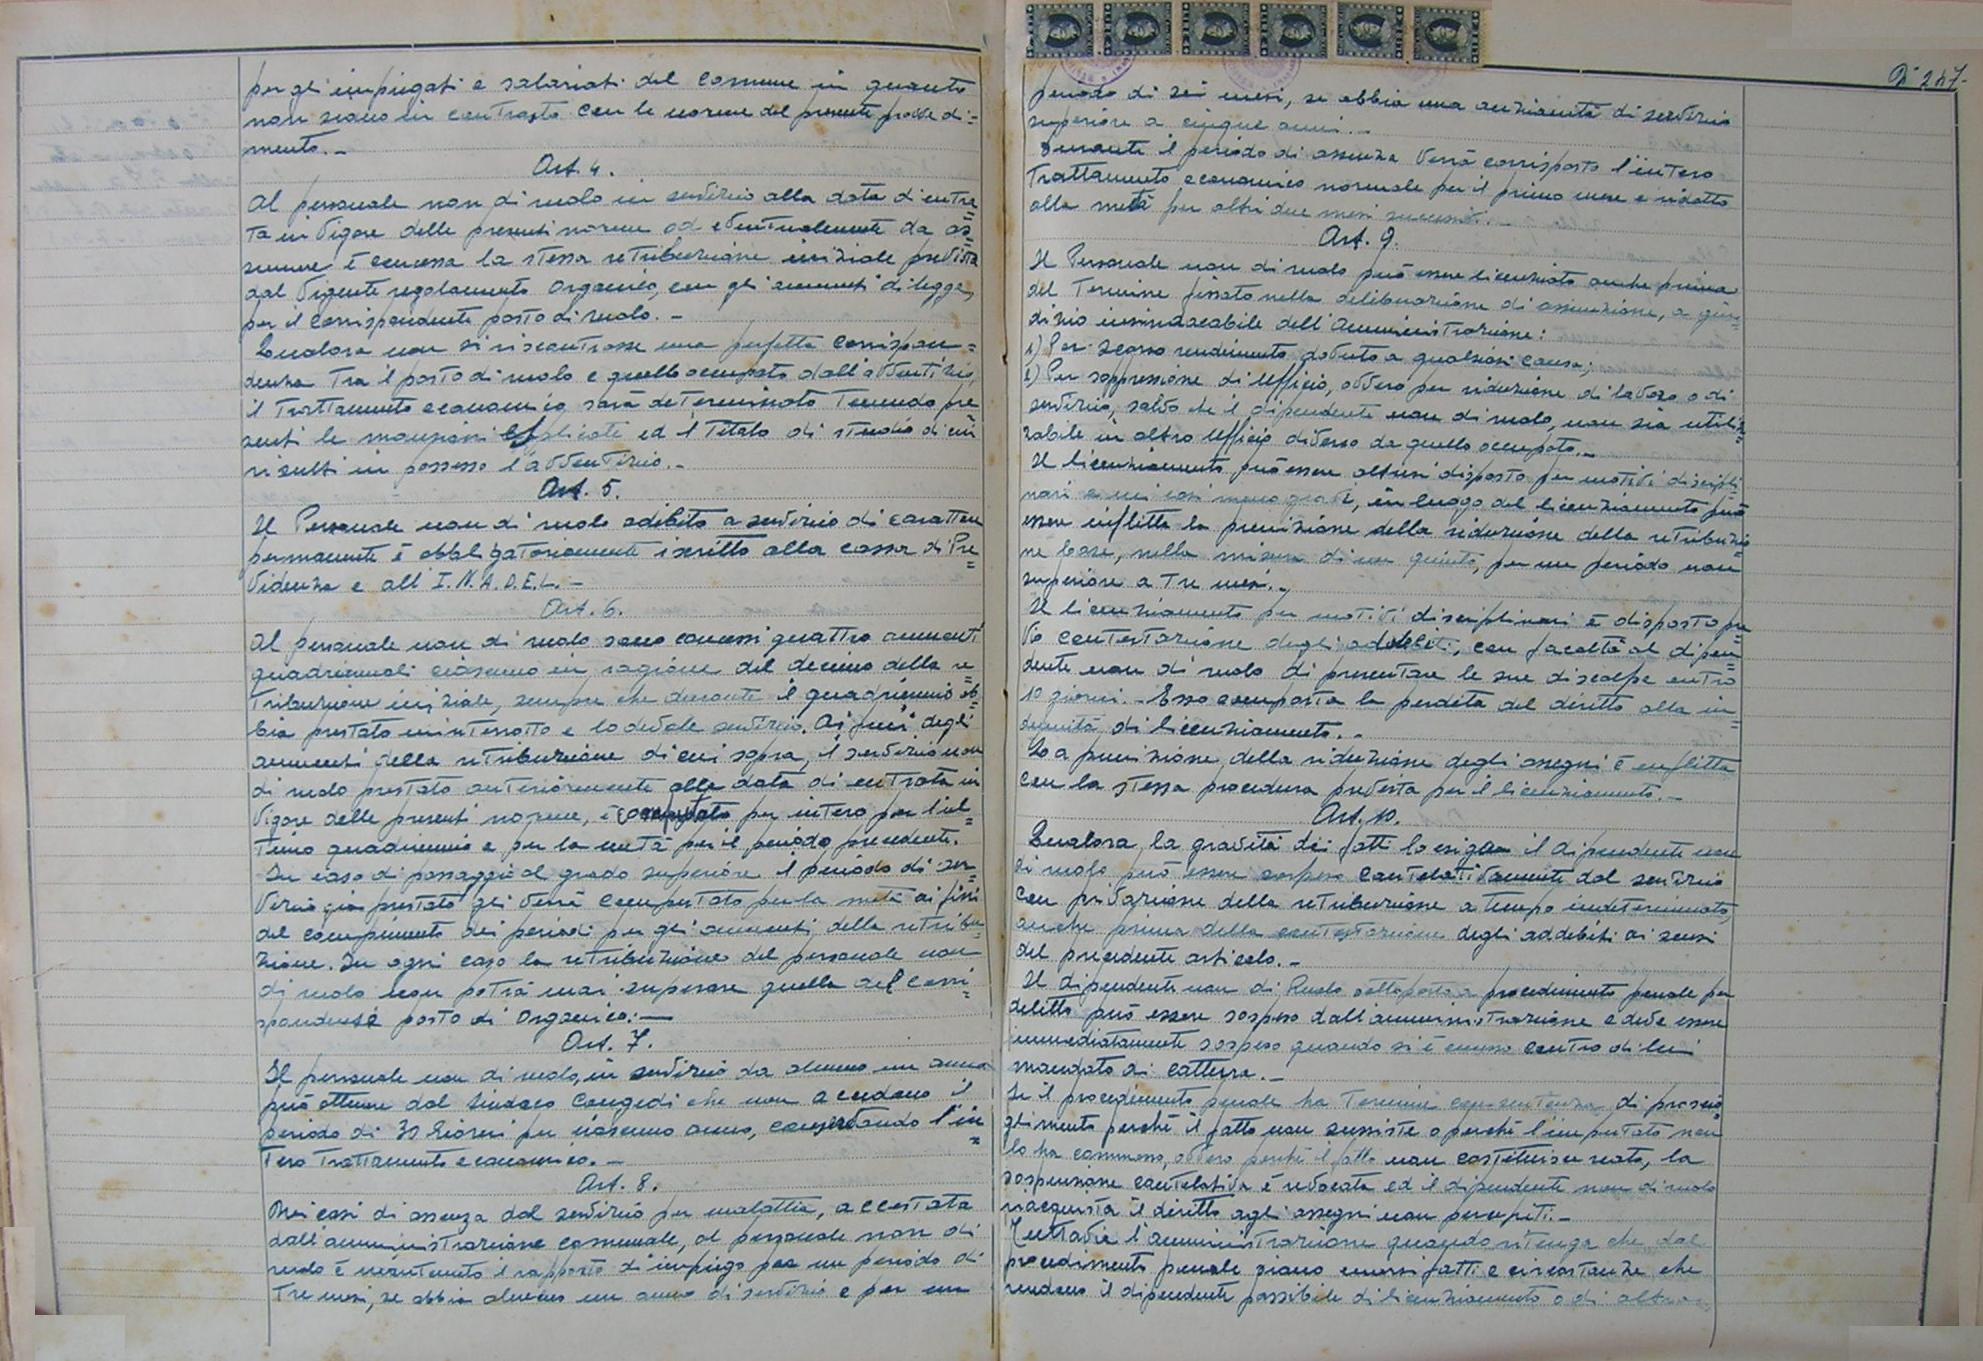 per gli impiegati e salariati del comune in quanto
non siano in contrasto con le norme del presente provvedi=
mento.-
Art. 4.
Al personale non di ruolo in servizio alla data di entra=
ta in vigore delle presenti norme od eventualmente da as=
sumere è concessa la stessa retribuzione iniziale prevista
dal vigente regolamento organico, con gli aumenti di legge,
per il corrispondente posto di ruolo.-
Qualora non si riscontrasse una perfetta corrispon=
denza tra il posto di ruolo e quello occupato dall'avventizio,
il trattamento economico sarà determinato tenendo pre=
senti le mansioni esplicate ed il titolo di studio di cui
risulti in possesso l'avventizio.-
Art. 5.
Il Personale non di ruolo adibito a servizio di carattere
permanente è obbligatoriamente iscritto alla cassa di Pre=
videnza e all'I.N.A.D.E.L.-
Art. 6.
Al personale non di ruolo sono concessi quattro aumenti
quadriennali ciascuno in ragione del decimo della re=
tribuzione iniziale, sempre che durante il quadriennio ab=
bia prestato ininterrotto e lodevole servizio. Ai fini degli
aumenti della retribuzione di cui sopra, il servizio non
di ruolo prestato anteriormente alla data di entrata in
vigore delle presenti norme, è computato per intero per l'ul=
timo quadriennio e per la metà per il periodo precedente.
In caso di passaggio al grado superiore il periodo di ser=
vizio già prestato gli verrà computato per la metà ai fini
del compimento dei periodi per gli aumenti della retribu=
zione. In ogni caso la retribuzione del personale non
di ruolo non potrà mai superare quella del corri=
spondente posto di organico.-
Art. 7.
Il personale non di ruolo, in servizio da almeno un anno
può ottenere dal Sindaco congedi che non eccedano il
periodo di 30 giorni per ciascuno anno, conservando l'in=
tero trattamento economico.-
Art. 8.
Nei casi di assenza dal servizio per malattia, accertata
dall'amministrazione comunale, al personale non di
ruolo è mantenuto il rapporto di impiego per un periodo di
tre mesi, se abbia almeno un anno di servizio e per un
247-
periodo di sei mesi, se abbia una anzianità di servizio
superiore a cinque anni.-
Durante il periodo di assenza verrà corrisposto l'intero
trattamento economico normale per il primo mese e ridotto
alla metà per altri due mesi successivi.-
Art. 9.
Il Personale non di ruolo può essere licenziato anche prima
del termine fissato nella deliberazione di assunzione, a giu=
dizio insindacabile dell'amministrazione:
1) Per scarso rendimento dovuto a qualsiasi causa;
2) Per soppressione di Ufficio, ovvero per riduzione di lavoro o di
servizio, salvo che il dipendente non di ruolo, non sia utiliz=
zabile in altro Ufficio diverso da quello occupato.-
Il licenziamento può essere altresì disposto per motivi discipli=
nari e nei casi meno gravi, in luogo del licenziamento può
essere inflitta la punizione della riduzione della retribuzio=
ne base, nella misura di un quinto, per un periodo non
superiore a tre mesi.-
Il licenziamento per motivi disciplinari è disposto pre=
via contestazione degli addebiti, con facoltà al dipen=
dente non di ruolo di presentare le sue discolpe entro
10 giorni.- Esso comporta la perdita del diritto alla in=
dennità di licenziamento.-
La punizione della riduzione degli assegni è inflitta
con la stessa procedura prevista per il licenziamento.-
Art. 10.
Qualora la gravità dei fatti lo esiga il dipendente non
di ruolo può essere sospeso cautelativamente dal servizio
con privazione della retribuzione a tempo indeterminato,
anche prima della contestazione degli addebiti ai sensi
del precedente articolo.-
Il dipendente non di Ruolo sottoposto a procedimento penale per
delitto può essere sospeso dall'amministrazione e deve essere
immediatamente sospeso quando si è emesso contro di lui
mandato di cattura.-
Se il procedimento penale ha termine con sentenza di proscio=
glimento perché il fatto non sussiste o perché l'imputato non
lo ha commesso, ovvero perché il fatto non costituisce reato, la
sospensione cautelativa è revocata ed il dipendente non di ruolo
riacquista il diritto agli assegni non percepiti.-
Tuttavia l'amministrazione quando ritenga che dal
procedimento penale siano emersi fatti e circostanze che
rendano il dipendente passibile di licenziamento o di altra